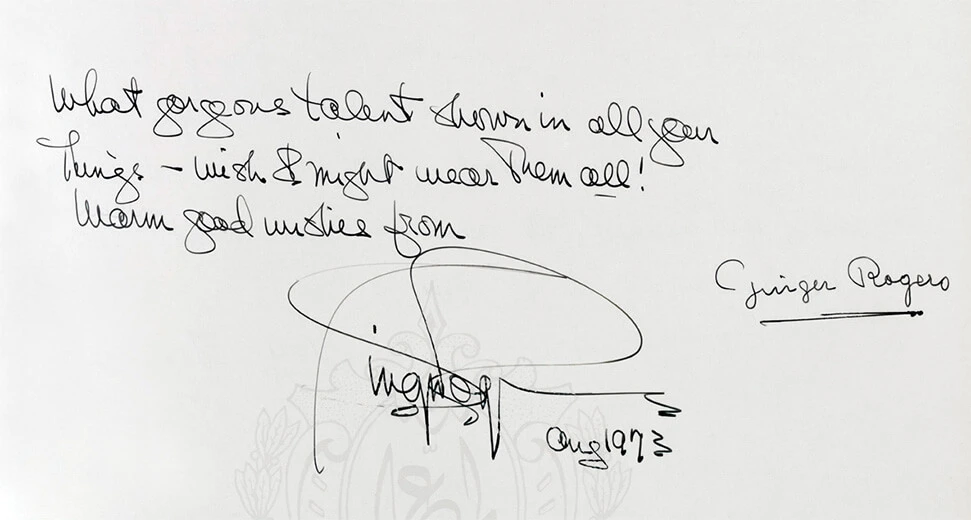 What gorgeous talent shown in all your
things – wish I might wear them all!
Warm good wishes from
Ginger Rogers
Aug 1973